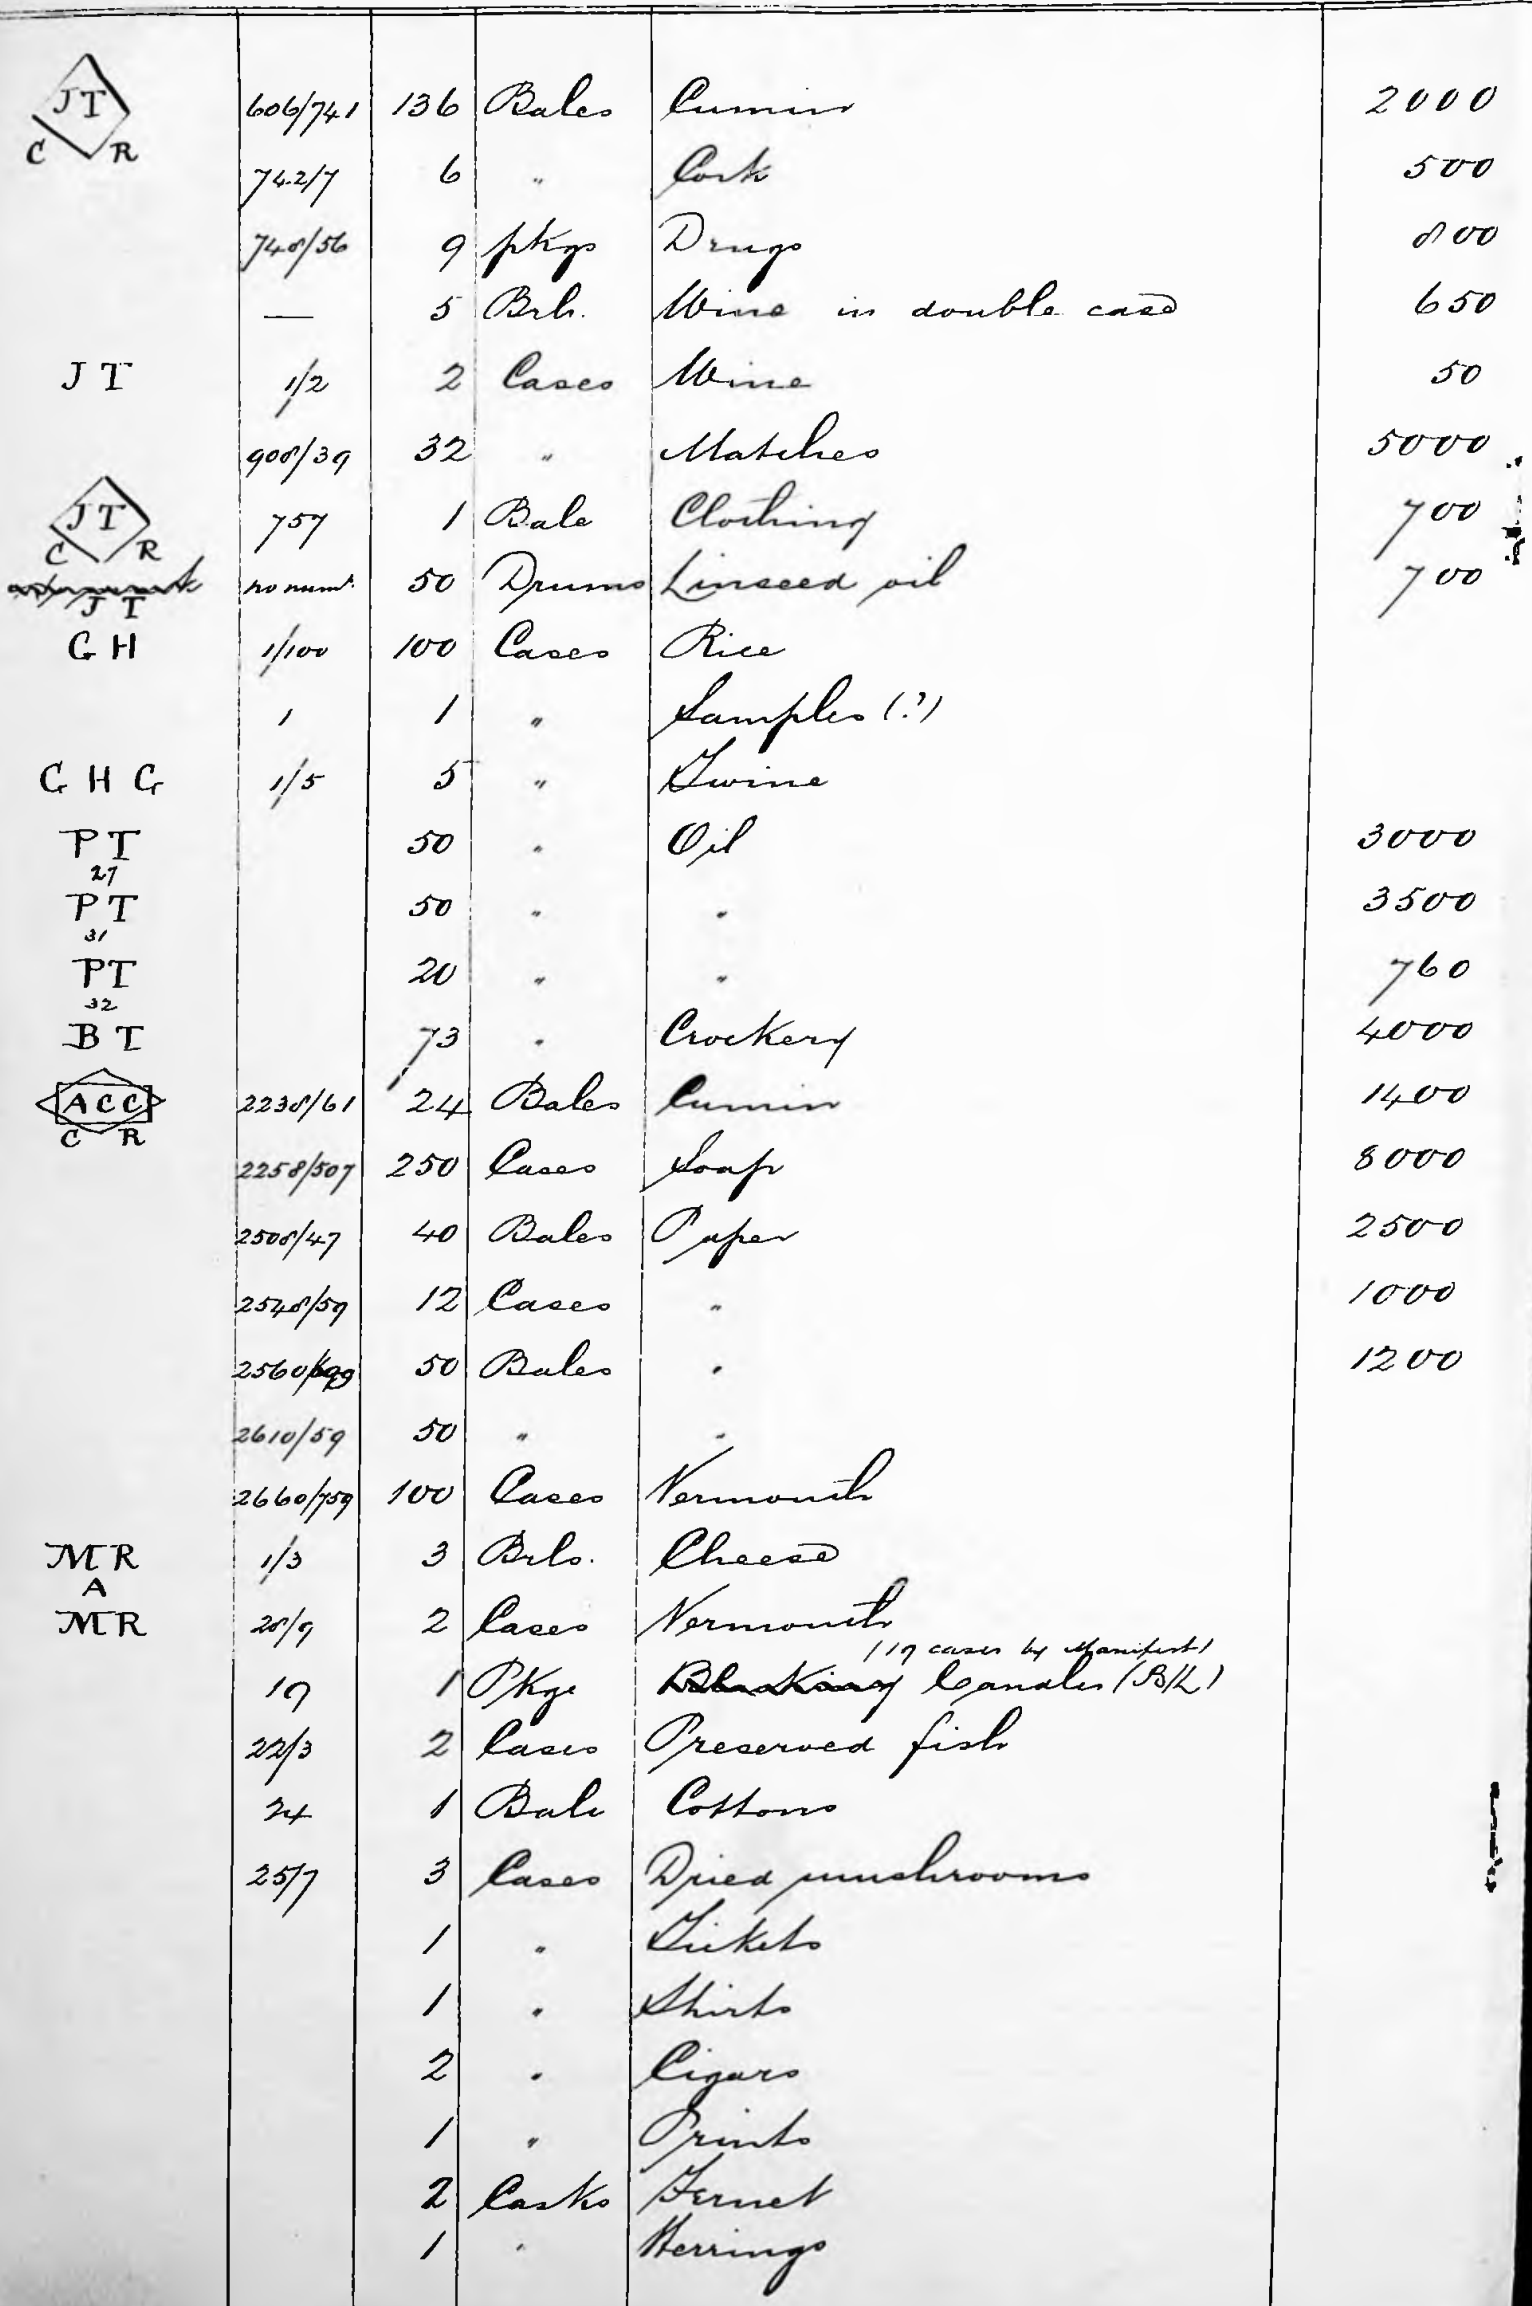 JT C R 606/741 136 Bales Cumin 2000
742/7 6 " Cork 500
748/56 9 pkgs Drugs 800
— 5 Brls. Wine in double case 650
J T 1/2 2 Cases Wine 50
908/39 32 " Matches 5000
JT C R 757 1 Bale Clothing 700
J T no numb. 50 Drums Linseed oil 700
G H 1/100 100 Cases Rice
1 1 " Samples (?)
G H G 1/5 5 " Twine
PT 27 50 " Oil 3000
PT 31 50 " " 3500
PT 32 20 " " 760
B T 73 " Crockery 4000
ACC C R 2238/61 24 Bales Cumin 1400
2258/507 250 Cases Soap 8000
2508/47 40 Bales Paper 2500
2548/59 12 Cases " 1000
2560/609 50 Bales " 1200
2610/59 50 " "
2660/759 100 Cases Vermouth
MR A 1/3 3 Brls. Cheese
MR 28/9 2 Cases Vermouth
(19 cases by Manifest)
19 1 Pkge Candles (B/L)
22/3 2 Cases Preserved fish
24 1 Bale Cottons
25/7 3 Cases Dried mushrooms
1 " Tickets
1 " Shirts
2 " Cigars
1 " Prints
2 Casks Fernet
1 " Herrings